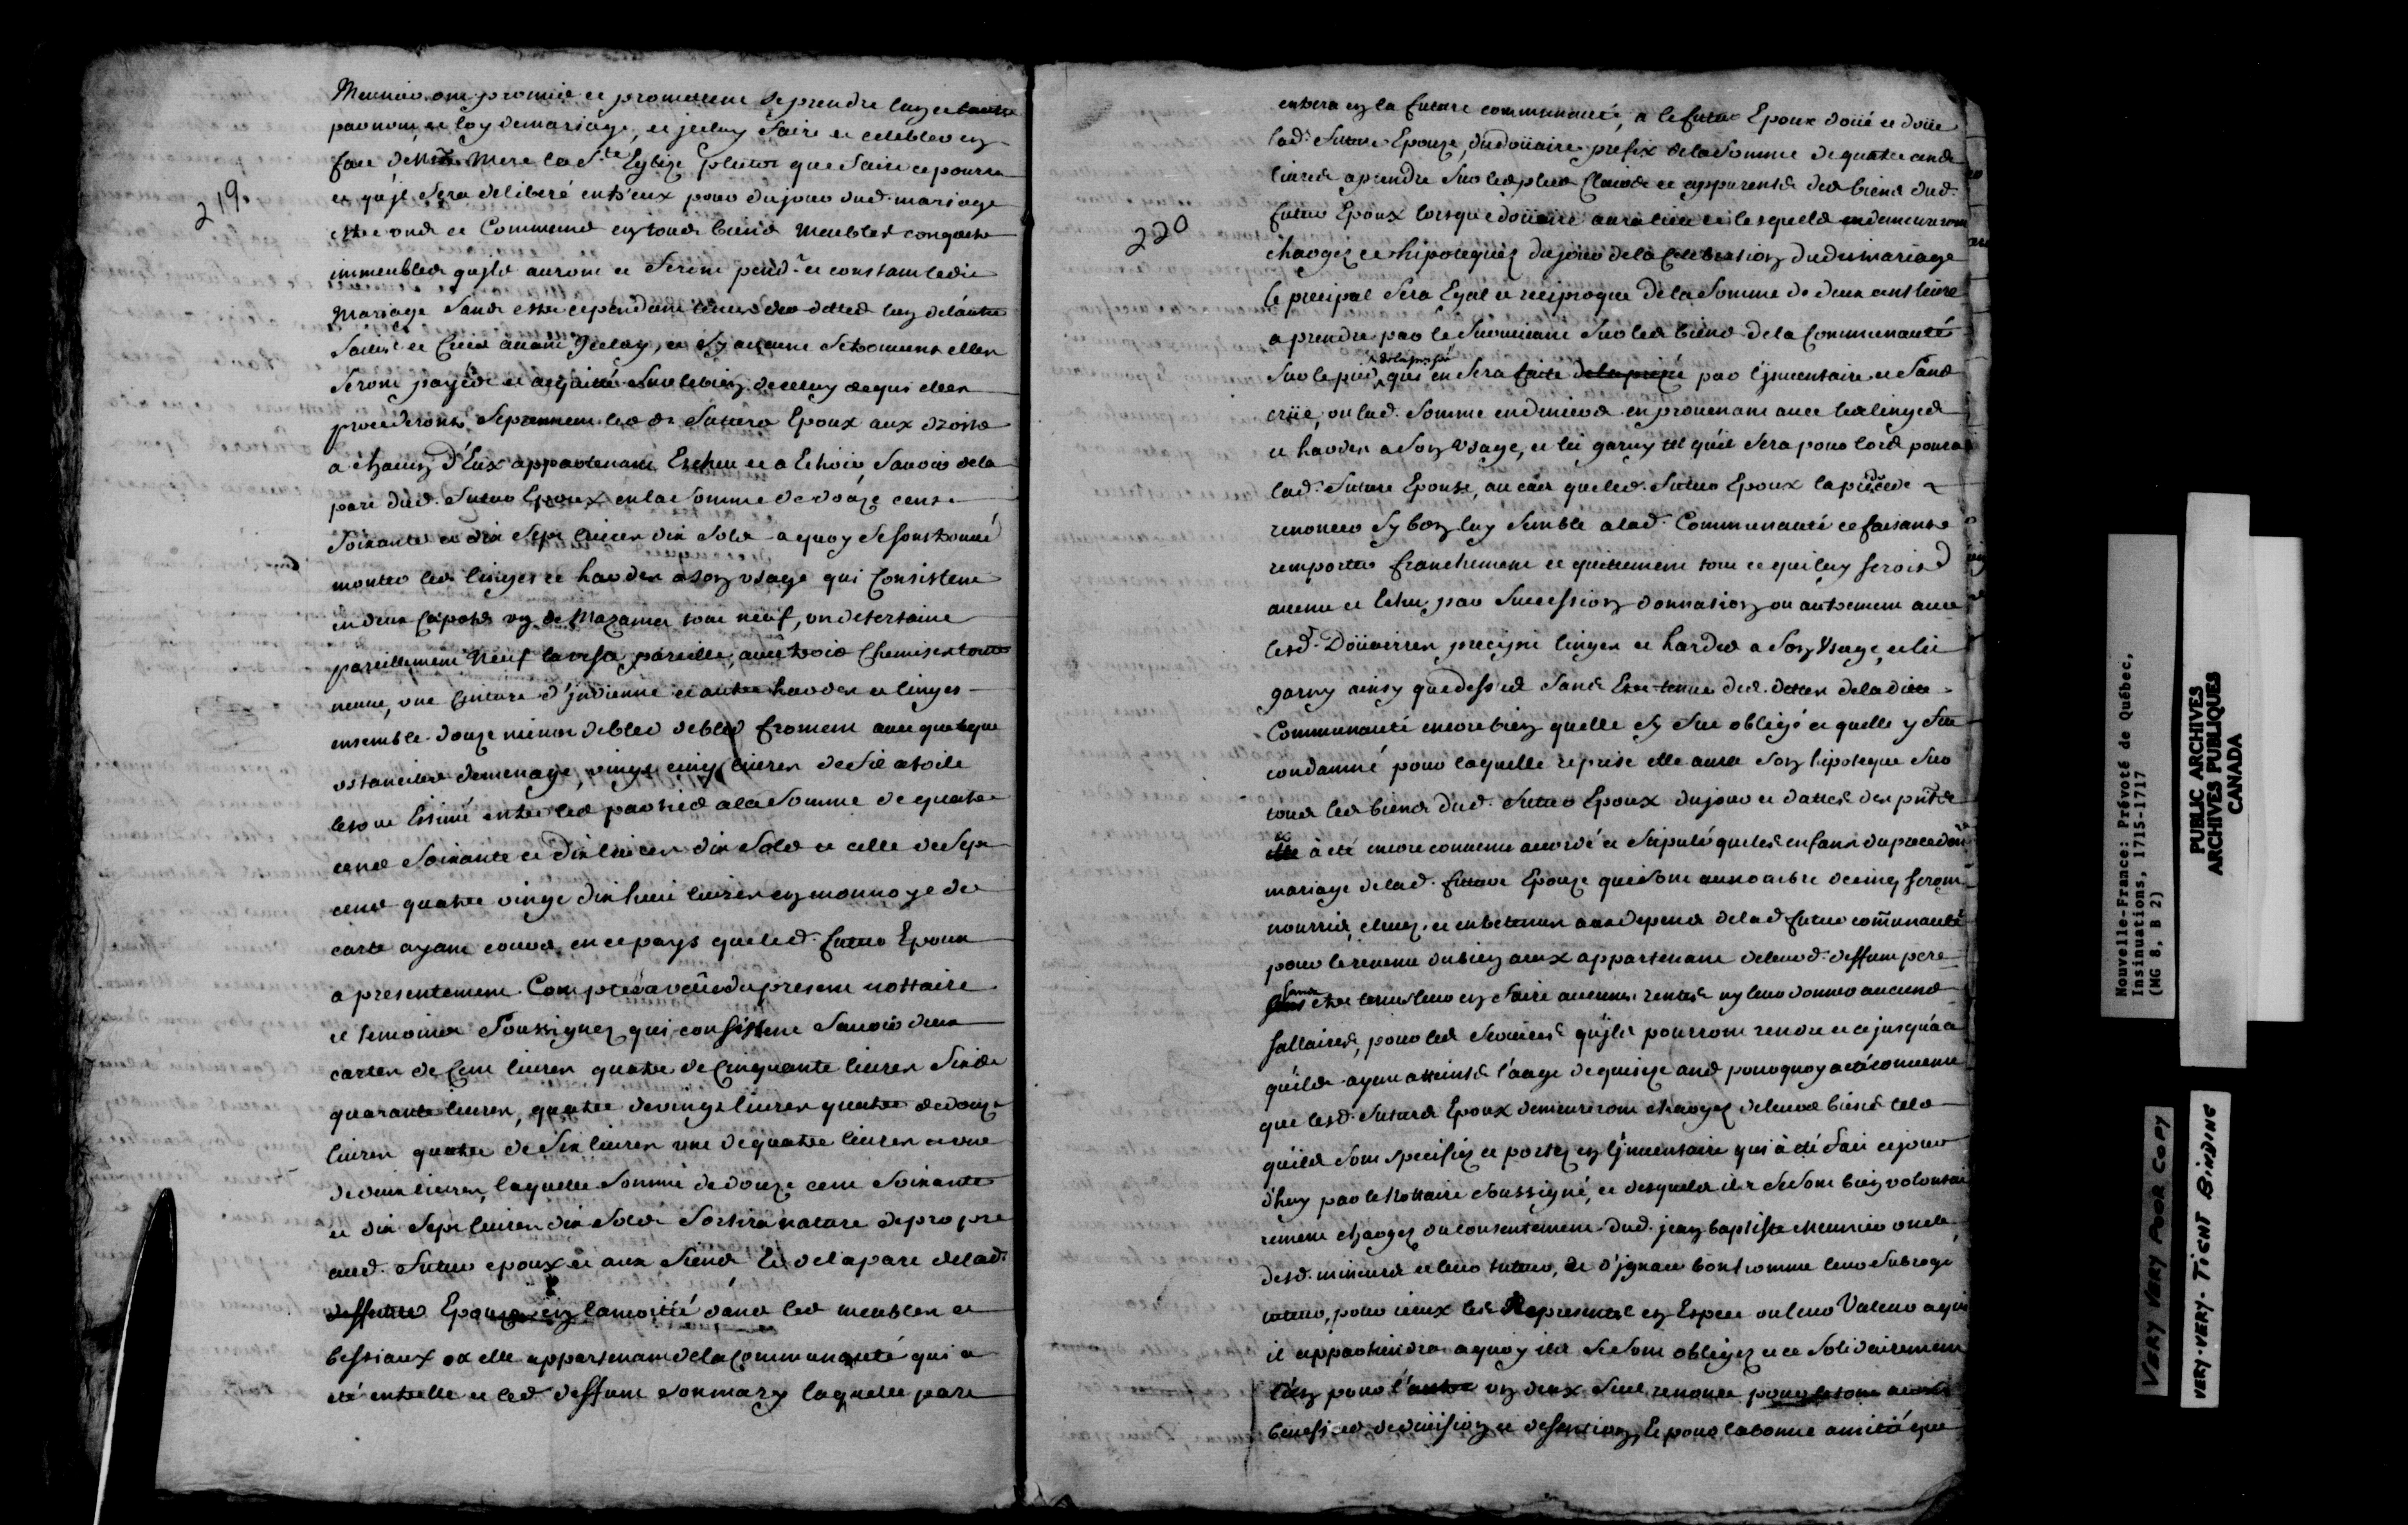 219.
Meunier ont promis et promettent se prendre luy et lautre
par nom et loy de mariage, et jceluy faire et celebrer en
face de nre Mere la Ste Eglize plutost que faire ce pourra
et qu'jl sera deliberé entr'eux pour du jour dud. mariage
estre uns et Communs en tous biens Meubles conquests
immeubles qujls auront et feront pend.t et constant ledit
Mariage sans estre cependant tenus des dettes luy de lautre
faites et Crées avant jceluy, et sy aucunne se trouvent elles
seront payées et acquitté sur le bien de celuy de qui elles
procederont, se prennent lesd. futurs Epoux aux droits
a chacun d'Eux appartenant Escheu et a Echoir savoir de la
part dud. futur Epoux en la somme de douze cent
soixante et dix sept livres dix sols a quoy se sont trouvé
monter les linges et hardes a son usage qui Consistent
en deux Capots un de Mazamet tout neuf, un de
pareillement Neuf la veste pareille, avec trois Chemises toutes
neuve, une Ceinture d'jndienne et autre hardes et linges
ensemble douze minots de bled de bled froment avec quelque
ustancilles de menage, vingt cinq livres de fil a toile
le tout Estimé entre les parties a la somme de quatre
cens soixante et dix livres dix sols et celle de sept
cens quatre vingt dix huit livres en monnoye de
carte ayant cours en ce pays que led. futur Epoux
a presentement Comptée a veüe du present nottaire
et temoins soussignez qui consistent savoir deux
cartes de Cent livres quatre de Cinquante livres six de
quarante livres, quatre de vingt livres quatre de douze
livres quatre de six livres une de quatre livres et une
de deux livres, laquelle somme de douze cent soixante
et dix sept livres dix sols sortira nature de propre
aud. futur epoux et aux siens Et de la part de lad.
Epouze en la moitié dans les meubles et
bestiaux a elle appartenant de la Communauté qui a
été entrelle et led. deffunt son mary laquelle part
220
entrera en la future communauté, a le futur Epoux doüé et doüe
lad. future Epouze, du doüaire prefix de la somme de quatre cens
livres a prendre sur les plus Clairs et apparents des biens dud.
futur Epoux lorsque doüaire aura lieu et lesquels en demeureront
chargez et hipotequéz du jour de la Celebration dudit mariage
le precipul sera Egal et reciproque de la somme de deux cent livres
a prendre par le survivant sur les biens de la Communauté
sur le pied de la prisée qui en sera faite de la prisée par l'jnventaire et sans
criie, ou lad. somme en deniers en provenant avec les linges
et hardes a son usage, et lit garny tel qu'il sera pour lors poura
lad. future Epouse, au cas que led. futur Epoux la precede
renoncer sy bon luy semble a lad. Communauté ce faisant
remporter franchement et quittement tout ce qui luy seroit
avenu et Echu par succession donnation ou autrement avec
lesd. Doüaires, preciput linges et hardes a son Usage, et lit
garny ainsy que dessus sans Estre tenue des dettes de la ditte
Communauté encore bien quelle sy fut obligé et quelle y fut
condamné pour laquelle reprise elle aura son hipoteque sur
tous les biens dud. futur Epoux du jour et dattes des pntes
à eté encore convenu accordé et stipulé que les enfans du precedent
mariage de lad. future Epouze qui sont au nombre de cinq seront
nourris, elevez et entretenus aux depens de lad future comunauté
pour le revenu du bien a eux appartenant de leurd. deffunt pere
sans estre tenus leur en faire aucunes rentes ny leur donner aucuns
sallaires, pour les services qu'jls pourront rendre et ce jusqu'a ce
quils ayent atteints l'aage de quinze ans pourquoy a été convenu
que lesd. futurs Epoux demeureront chargez de leurs biens tels
quils sont specifiez et portez en l'jnventaire qui à été fait ce jour
d'huy par le Nottaire soussigné, et desquels ils se sont bien volontai
rement chargez du consentement dud. jean baptiste Meunier oncle
desd. mineurs et leur tuteur, et d'jgnace bonhomme leur subrogé
tuteur, pour iceux les Representer en Espece ou leur Valeur a qui
il appartiendra a quoy ils se sont obligez et ce solidairement
l'un pour l'autre un deux seul renonce pour le tout aux
benefices de division et discution, Et pour la bonne amitié que
Nouvelle-France: Prévoté de Québec,
Insinuations, 1715-1717
(MG 8, B 2)
PUBLIC ARCHIVES
ARCHIVES PUBLIQUES
CANADA
VERY VERY POOR COPY
VERY-VERY-TIGHT BINDING